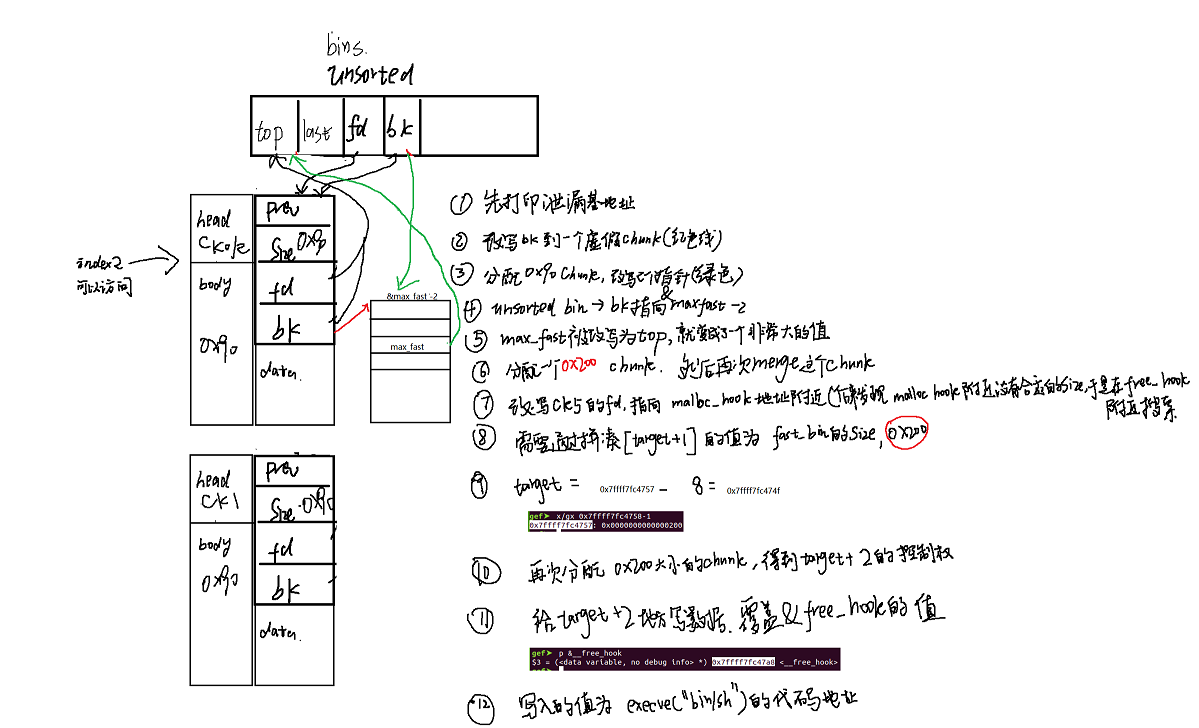 bins.
unsorted
top last fd bk
head
ck0/2
prev
size 0x90
body
0x90
fd
bk
data
index2
可以访问
&max_fast -2
max_fast
head
ck1
prev
size 0x90
body
0x90
fd
bk
data
① 先打印泄漏基地址
② 改写bk到一个虚假chunk(红色线)
③ 分配0x90 chunk, 改写 指针(绿色)
④ unsorted bin → bk指向&maxfast -2
⑤ max_fast被改写为top, 就变成了一个非常大的值
⑥ 分配一个0x200 chunk. 然后再次merge这个chunk
⑦ 改写ck5的fd, 指向 malloc_hook地址附近 malloc hook附近没有合适的size, 于是在free_hook
附近搜索
⑧ 需要通过拼凑[target+1]的值为 fast_bin的size, 0x200
⑨ target = 0x7ffff7fc4757 - 8 = 0x7ffff7fc474f
gef➤ x/gx 0x7ffff7fc4758-1
0x7ffff7fc4757: 0x0000000000000200
⑩ 再次分配 0x200大小的chunk, 得到target+2的控制权
⑪ 给target+2地方写数据. 覆盖&free_hook的值
gef➤ p &__free_hook
$3 = (<data variable, no debug info> *) 0x7ffff7fc47a8 <__free_hook>
⑫ 写入的值为 execve("bin/sh")的代码地址